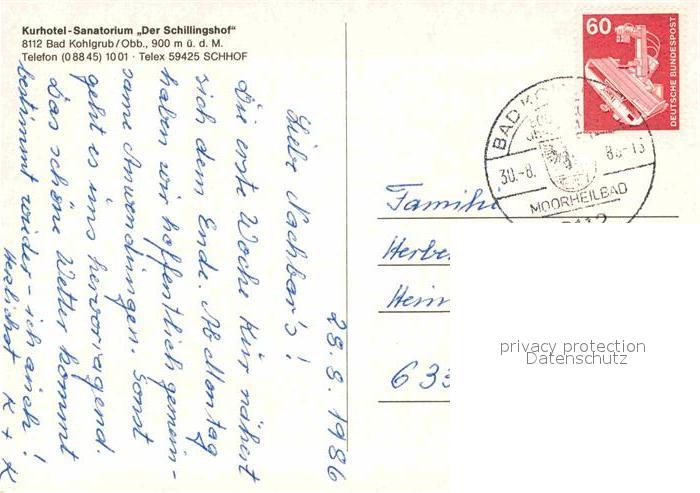 Kurhotel-Sanatorium „Der Schillingshof“
8112 Bad Kohlgrub/Obb., 900 m ü. d. M.
Telefon (0 88 45) 10 01 · Telex 59425 SCHHOF
28. 8. 1986
Liebe Nachbar's!
Die erste Woche Kur nähert
sich dem Ende. Ab Montag
haben wir hoffentlich gemein-
same Anwendungen. Sonst
geht es uns hervorragend.
Das schöne Wetter kommt
bestimmt wieder - ich auch!
Herzlichst K + K
60
DEUTSCHE BUNDESPOST
BAD KO
30.-8. 86-13
MOORHEILBAD
8112
Familie
Herbe
Hein
633
privacy protection
Datenschutz